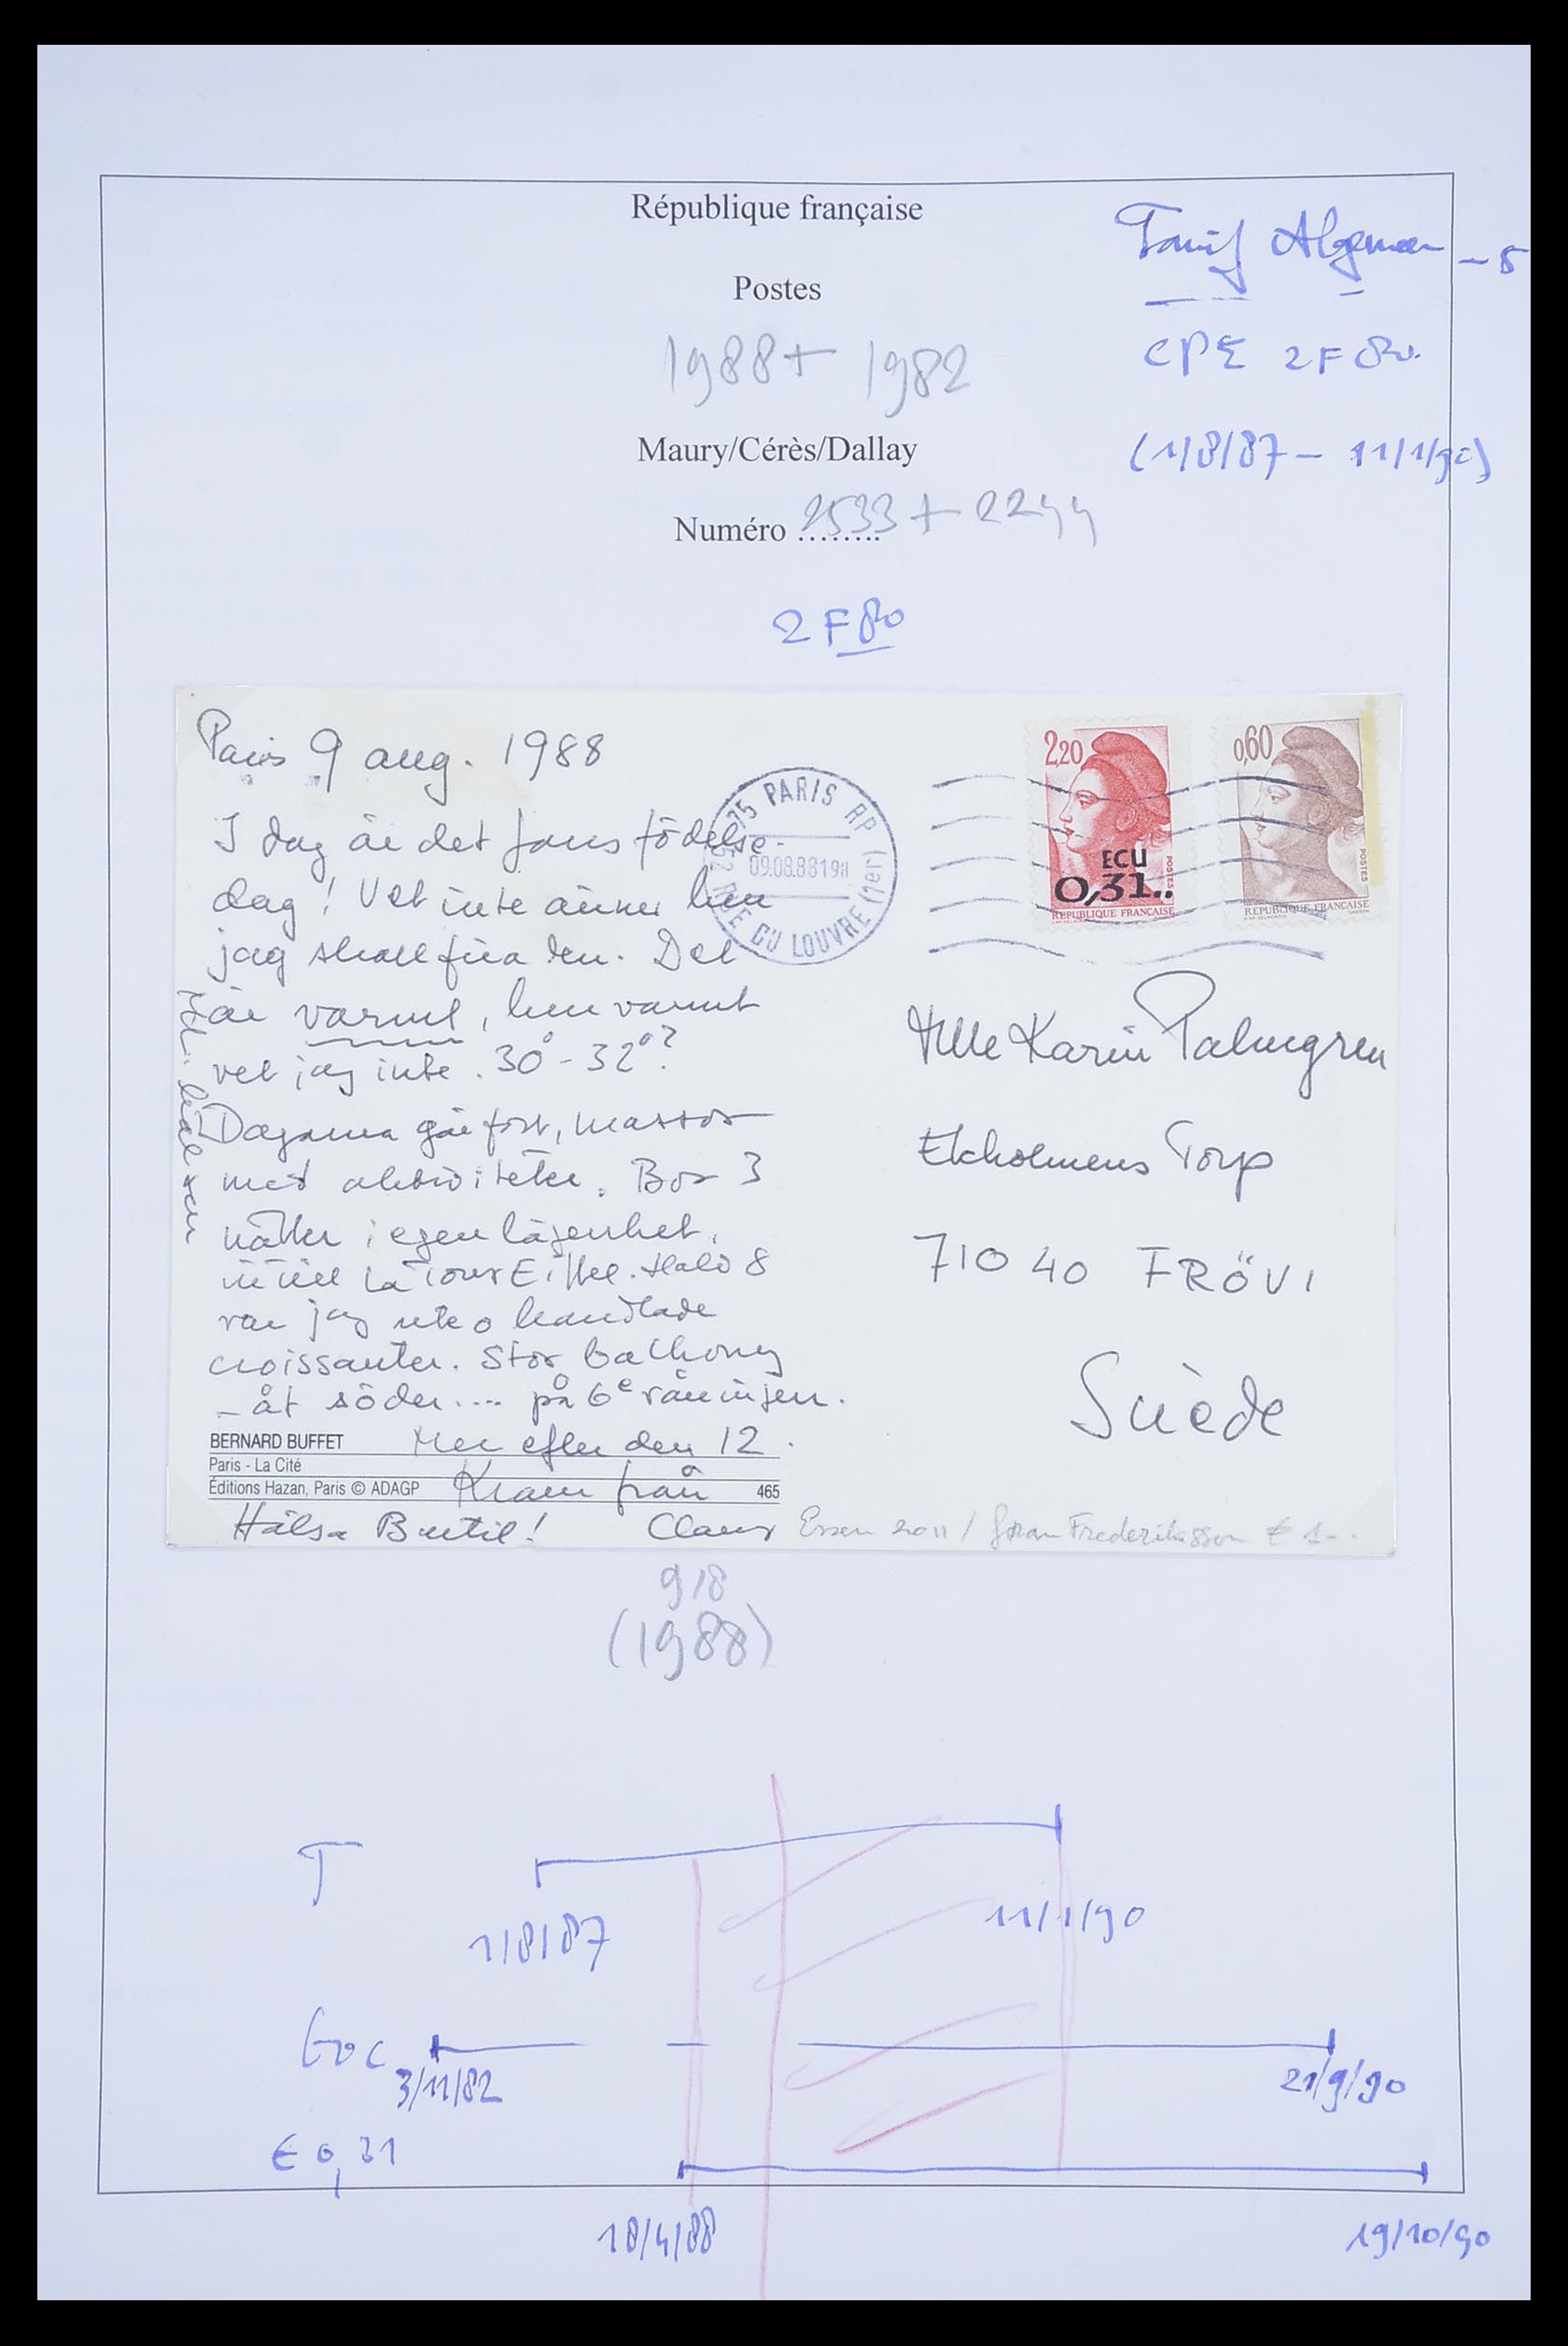 République française
Postes
1988 + 1982
Maury/Cérès/Dallay
Numéro ........ 2533 + 2244
2F80
Tarif
- 5
CPE 2F80
(1/8/87 - 11/1/90)
Paris 9 aug. 1988
I dag är det fars födelse-
dag! Vet inte ännu hur
jag skall fira den. Det
är varmt, hur varmt
vet jag inte. 30° - 32°?
Dagarna går fort, massor
med aktiviteter. Bor 3
nätter i egen lägenhet,
intill La Tour Eiffel. Halv 8
var jag ute o handlade
croissanter. Stor balkong
- åt söder.... på 6e våningen.
BERNARD BUFFET
Mer efter den 12.
Paris - La Cité
Éditions Hazan, Paris © ADAGP
Kram från
465
Hälsa Bertil!
75 PARIS RP (1er)
09.08.88 19H
52 RUE DU LOUVRE
2,20
ECU
0,31..
POSTES
REPUBLIQUE FRANÇAISE
0,60
POSTES
REPUBLIQUE FRANÇAISE
Mlle Karin Palmgren
Ekholmens Torp
710 40 FRÖVI
Suède
Essen 2011 / Göran Frederiksson € 1-..
9/8
(1988)
T
1/8/87
11/1/90
3/11/82
21/9/90
€ 0,31
18/4/88
19/10/90